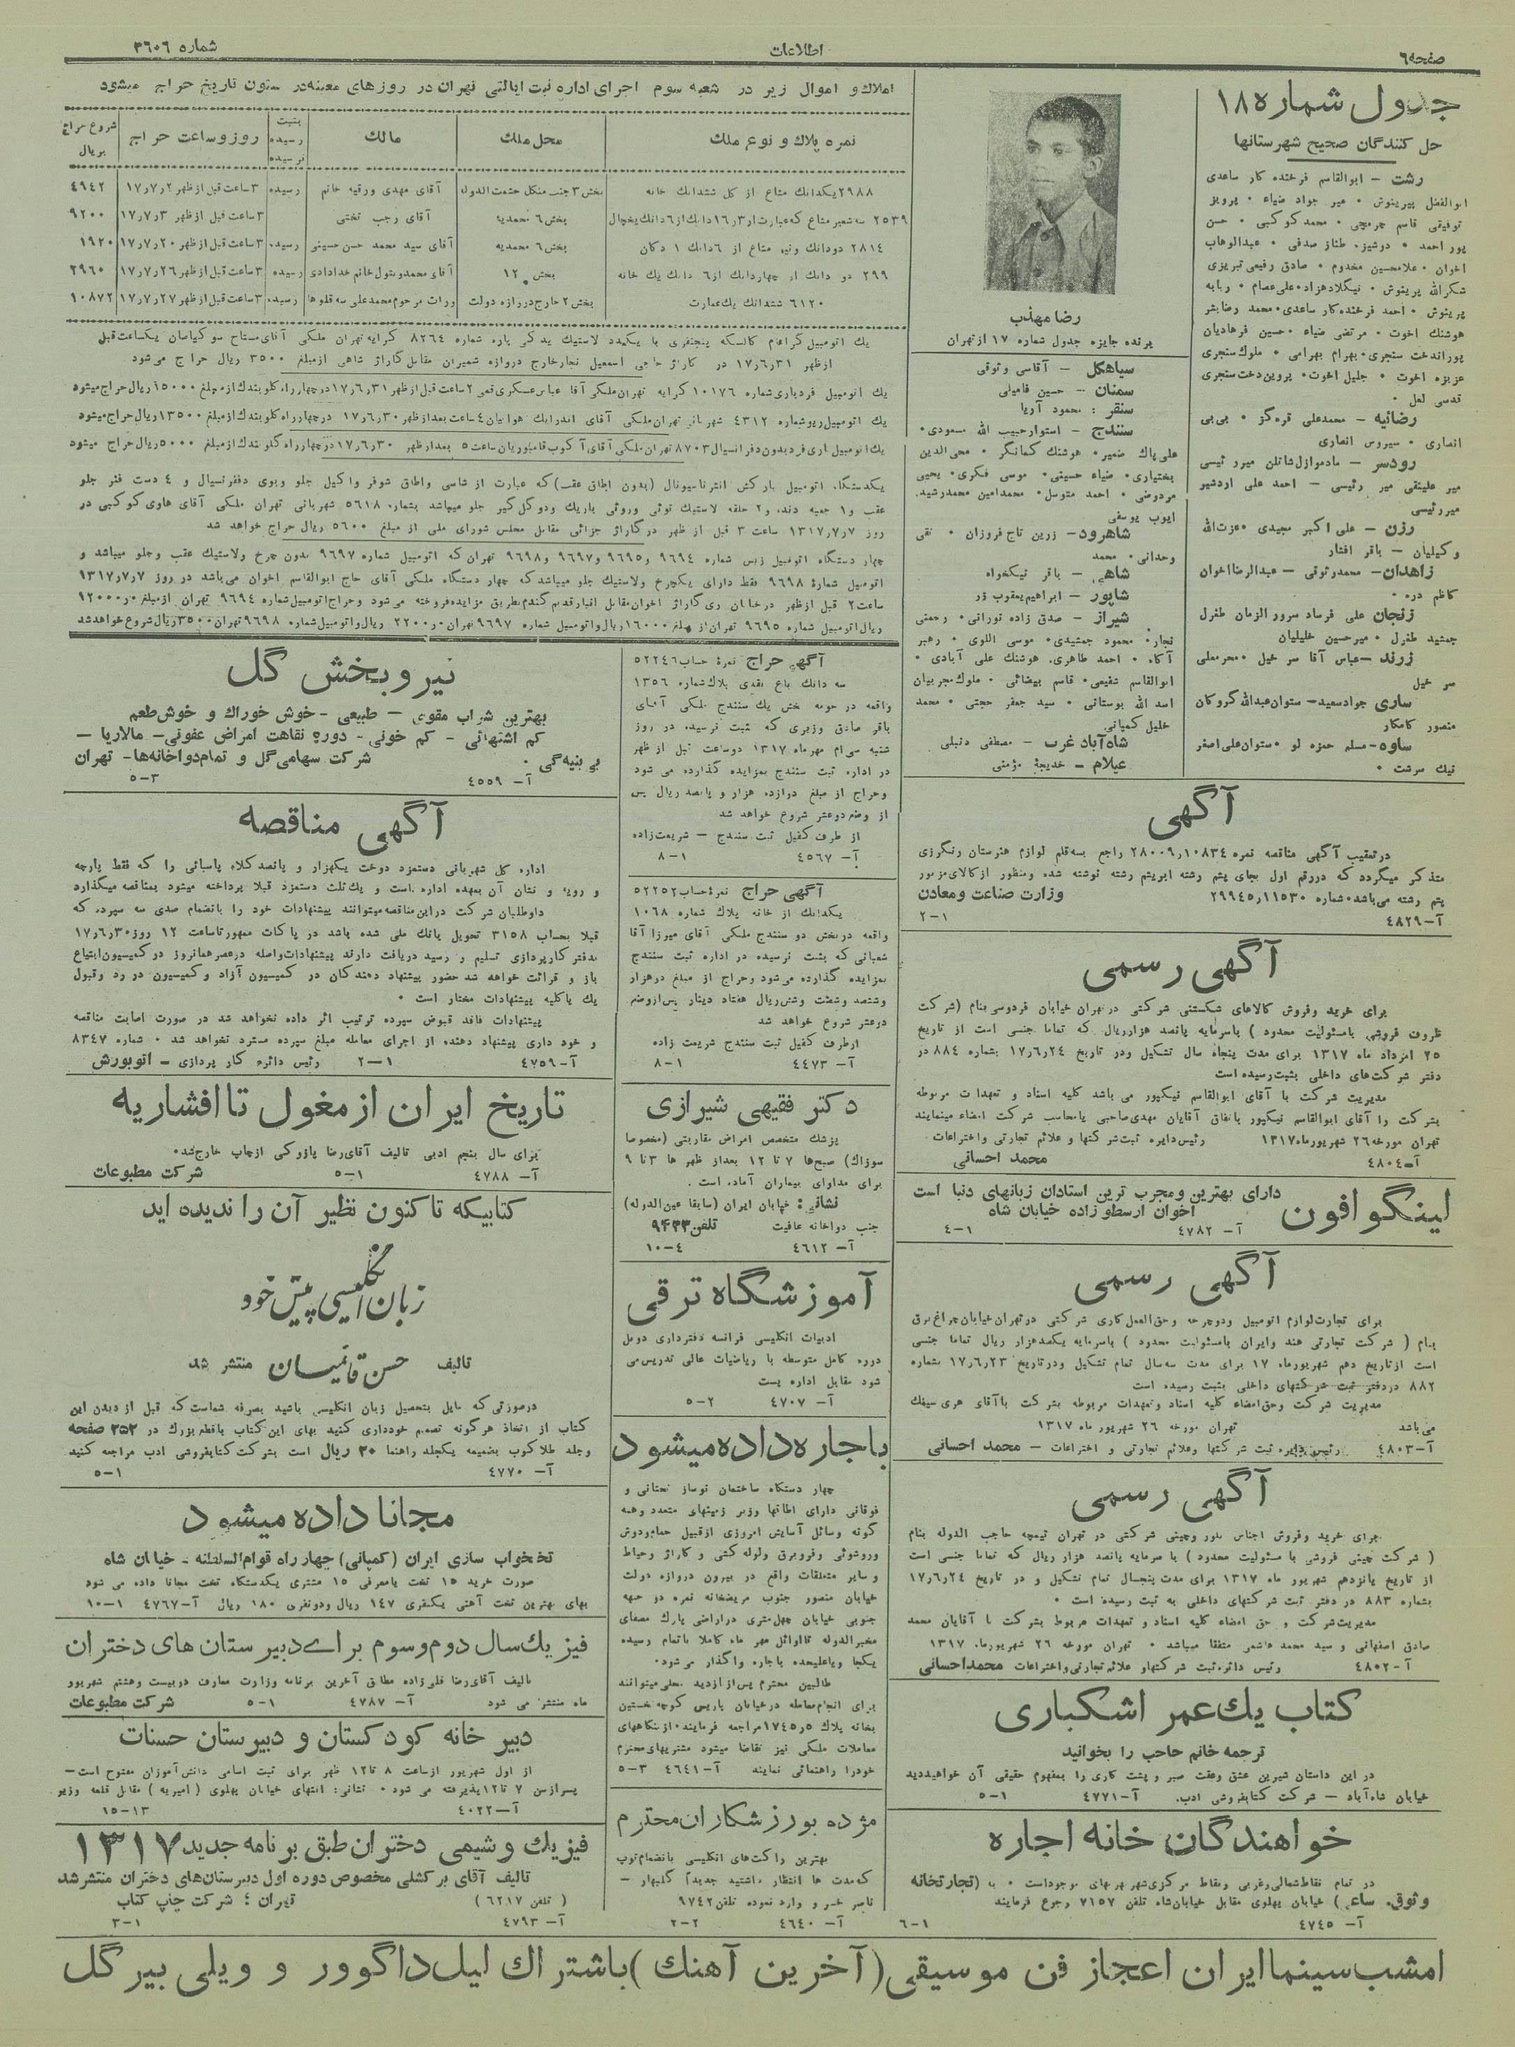 صفحه۶
اطلاعات
شماره ۳۶۰۶
جدول شماره ۱۸
حل کنندگان صحیح شهرستانها
رشت - ابوالقاسم فرخنده کار ساعدی
ابوالفضل پیرینوش • میر جواد ضیاء • پرویز
توفیقی قاسم چرمچی • محمد کوکبی • حسن
پور احمد • دوشیزه طناز صدقی • عبدالوهاب
اخوان • غلامحسین مخدوم • صادق رفیعی تبریزی
هوشنك اخوت • مرتضی ضیاء • حسین فرهادیان
پوراندخت سنجری • بهرام بهرامی • ملوك سنجری
عزیزه اخوت • جلیل اخوت • پروین دخت سنجری
قدسی لعل •
رضائیه - محمدعلی قره گز • بی بی
انصاری • سیروس انصاری
میر علینقی میر رئیسی - احمد علی اردشیر
میررئیسی
رزن - علی اکبر مجیدی • عزت الله
وکیلیان - باقر افشار
زاهدان - محمد وثوقی - عبدالرضا اخوان
کاظم دره •
زنجان علی فرساد سرور الزمان طغرل
جمشید طغرل • میرحسین خلیلیان
زرند - عباس آقا سر خیل • محرمعلی
سر خیل
ساری جوادسعید - ستوان عبدالله گروکان
منصور کامکار
ساوه - مسلم حمزه لو • ستوان علی اصغر
نیك سرشت •
رضا مهذب
برنده جایزه جدول شماره ۱۷ از تهران
سیاهکل - آقاسی وثوقی
سمنان - حسین فامیلی
سنقر : محمود آریا
سنندج - استوار حبیب الله مسعودی •
علی پاك ضمیر • هوشنك کمانگر • محی الدین
بختیاری • ضیاء حسینی • موسی فکری • یحیی
مردوخی • احمد متوسل • محمدامین محمدرشید •
ایوب یوسفی
شاهرود - زرین تاج فروزان • تقی
وحدانی • محمد
شاهی - باقر نیکخواه
شاپور - ابراهیم یعقوب زر
شیراز - صدق زاده نورانی • رحمتی
نجار • محمود جمشیدی • موسی اللوی • رهبر
آگاه • احمد طاهری • هوشنك علی آبادی •
ابوالقاسم شفیعی • قاسم بیضائی • ملوك مجربیان
اسد الله بوستانی • سید جعفر حجتی • محمد
خلیل کمپانی
شاه آباد غرب - مصطفی دنبلی
عیلام - خدیجه مؤمنی
املاك و اموال زیر در شعبه سوم اجرای اداره ثبت ایالتی تهران در روزهای معینه در ستون تاریخ حراج میشود
نمره پلاك و نوع ملك | محل ملك | مالك | روز و ساعت حراج | بثبت رسیده نرسیده | شروع حراج بریال
۲۹۸۸ یکدانك مشاع از کل ششدانك خانه | بخش ۳ جنب منگل حشمت الدوله | آقای مهدی ورقیه خانم | ۳ ساعت قبل از ظهر ۱۷٫۷٫۲ | رسیده | ۴۹۴۲
۲۵۳۹ سه شعیر مشاع که عبارت از ۱۶٫۳ دانك از ۶ دانك یخچال | بخش ۶ محمدیه | آقای رجب تختی | ۳ ساعت قبل از ظهر ۱۷٫۷٫۳ | ۹۲۰۰
۲۸۱۴ دودانك ونیم مشاع از ۶ دانك ۱ دکان | بخش ۶ محمدیه | آقای سید محمد حسن حسینی | ۳ ساعت قبل از ظهر ۱۷٫۷٫۲۰ | رسیده | ۱۹۲۰
۲۹۹ دو دانك از چهاردانك از ۶ دانك یك خانه | بخش ۱۲ | آقای محمد وبتول خانم خدادادی | ۳ ساعت قبل از ظهر ۱۷٫۷٫۲۶ | رسیده | ۲۹۶۰
۶۱۲۰ ششدانك یك عمارت | بخش ۲ خارج دروازه دولت | وراث مرحوم محمدعلی سه قلوها | ۳ ساعت قبل از ظهر ۱۷٫۷٫۲۷ | رسیده | ۱۰۸۷۲
از ظهر ۱۷٫۶٫۳۱ در گاراژ حاجی اسمعیل نجار خارج دروازه شمیران مقابل گاراژ شاهی از مبلغ ۳۵۰۰ ریال حراج می شود
یك اتومبیل فرد باری شماره ۱۰۱۷۶ کرایه تهران ملکی آقا عباس عسکری قمی ۲ ساعت قبل از ظهر ۱۷٫۶٫۳۱ در چهارراه کلوبندك از مبلغ ۱۵۰۰۰ ریال حراج میشود
یك اتومبیل ریو شماره ۴۳۱۲ شهربانی تهران ملکی آقای اندرانیك هوانیان ۴ ساعت بعد از ظهر ۱۷٫۶٫۳۰ در چهارراه کلوبندك از مبلغ ۱۳۵۰۰ ریال حراج میشود
یکدستگاه اتومبیل بارکش انترناسیونال (بدون اطاق عقب) که عبارت از شاسی واطاق شوفر واکیل جلو وپوی دفرنسیال و ۴ دست فنر جلو
روز ۱۳۱۷٫۷٫۷ ساعت ۳ قبل از ظهر در گاراژ جزائی مقابل مجلس شورای ملی از مبلغ ۵۶۰۰ ریال حراج خواهد شد
چهار دستگاه اتومبیل زیس شماره ۹۶۹۴ و ۹۶۹۵ و ۹۶۹۷ و ۹۶۹۸ تهران که اتومبیل شماره ۹۶۹۷ بدون چرخ ولاستیك عقب وجلو میباشد و
اتومبیل شماره ۹۶۹۸ فقط دارای یکچرخ ولاستیك جلو میباشد که چهار دستگاه ملکی آقای حاج ابوالقاسم اخوان می باشد در روز ۱۳۱۷٫۷٫۷
ساعت ۲ قبل از ظهر در خیابان ری گاراژ اخوان مقابل انبار قدیم گندم بطریق مزایده فروخته می شود وحراج اتومبیل شماره ۹۶۹۴ تهران از مبلغ ۹۲۰۰۰
ریال اتومبیل شماره ۹۶۹۵ تهران از مبلغ ۱۶۰۰۰ ریال واتومبیل شماره ۹۶۹۷ تهران ۲۲۰۰ ریال واتومبیل شماره ۹۶۹۸ تهران ۳۵۰۰ ریال شروع خواهد شد
نیروبخش گل
بهترین شراب مقوی - طبیعی - خوش خوراك و خوش طعم
کم اشتهائی - کم خونی - دوره نقاهت امراض عفونی - مالاریا -
بی بنیه گی • شرکت سهامی گل و تمام دواخانه ها - تهران
آ- ۴۵۵۹ ۵-۳
آگهی مناقصه
اداره کل شهربانی دستمزد دوخت یکهزار و پانصد کلاه پاسبانی را که فقط پارچه
و رویه و نشان آن بعهده اداره است و یك ثلث دستمزد قبلا پرداخته میشود بمناقصه میگذارد
داوطلبان شرکت در این مناقصه میتوانند پیشنهادات خود را بانضمام صدی سه سپرده که
قبلا بحساب ۳۱۵۸ تحویل بانك ملی شده باشد در پاکات ممهور تا ساعت ۱۲ روز ۱۷٫۶٫۳۰
بدفتر کارپردازی تسلیم و رسید دریافت دارند پیشنهادات واصله در عصر همانروز در کمیسیون ابتیاع
باز و قرائت خواهد شد حضور پیشنهاد دهندگان در کمیسیون آزاد وکمیسیون در رد وقبول
یك یا کلیه پیشنهادات مختار است •
پیشنهادات فاقد قبوض سپرده ترتیب اثر داده نخواهد شد در صورت اصابت مناقصه
و خود داری پیشنهاد دهنده از اجرای معامله مبلغ سپرده مسترد نخواهد شد • شماره ۸۳۴۷
آ-۴۷۵۹ ۲-۱ رئیس دائره کار پردازی - اتوبورش
تاریخ ایران از مغول تا افشاریه
برای سال پنجم ادبی تالیف آقای رضا پازوکی از چاپ خارج شد •
آ- ۴۷۸۸ ۵-۱ شرکت مطبوعات
کتابیکه تا کنون نظیر آن را ندیده اید
زبان انگلیسی پیش خود
تالیف حسن قائمیان منتشر شد
درصورتی که مایل بتحصیل زبان انگلیسی باشید بصرفه شماست که قبل از دیدن این
کتاب از اتخاذ هرگونه تصمیم خودداری کنید بهای این کتاب باقطع بزرك در ۲۵۲ صفحه
وجلد طلاکوب بضمیمه یکجلد راهنما ۲۰ ریال است بشرکت کتابفروشی ادب مراجعه کنید
آ- ۴۷۷۰ ۵-۱
مجانا داده میشود
تختخواب سازی ایران (کمپانی) چهارراه قوام السلطنه - خیابان شاه
صورت خرید ۱۵ تخت یا معرفی ۱۵ مشتری یکدستگاه تخت مجانا داده می شود
بهای بهترین تخت آهنی یکنفری ۱۴۷ ریال ودونفری ۱۸۰ ریال آ-۴۷۶۷ ۱۰-۱
فیزیك سال دوم و سوم برای دبیرستان های دختران
تالیف آقای رضا قلی زاده مطابق آخرین برنامه وزارت معارف در بیست وهشتم شهریور
ماه منتشر می شود آ- ۴۷۸۷ ۵-۱ شرکت مطبوعات
دبیر خانه کودکستان و دبیرستان حسنات
از اول شهریور از ساعت ۸ تا ۱۲ ظهر برای ثبت اسامی دانش آموزان مفتوح است -
پسر از سن ۷ تا ۱۲ پذیرفته می شود • نشانی : انتهای خیابان پهلوی ( امیریه ) مقابل قلعه وزیر
آ-۴۰۲۲ ۱۵-۱۳
فیزیك و شیمی دختران طبق برنامه جدید ۱۳۱۷
تالیف آقای برکشلی مخصوص دوره اول دبیرستان های دختران منتشر شد
( تلفن ۶۲۱۷ ) تهران ؛ شرکت چاپ کتاب
آ- ۴۷۹۳ ۳-۱
آگهی حراج نمره حساب ۵۲۲۴۶
سه دانك باغ نقدی پلاك شماره ۱۳۵۶
واقعه در حومه بخش یك سنندج ملکی آقای
باقر صادق وزیری که بثبت نرسیده، در روز
شنبه سی ام مهر ماه ۱۳۱۷ دوساعت قبل از ظهر
در اداره ثبت سنندج بمزایده گذارده می شود
وحراج از مبلغ دوازده هزار و پانصد ریال پس
از وضع دو عشر شروع خواهد شد
از طرف کفیل ثبت سنندج - شریعت زاده
آ- ۴۵۶۷ ۸-۱
آگهی حراج نمره حساب ۵۲۲۵۲
یکدانك از خانه پلاك شماره ۱۰۶۸
واقعه در بخش دو سنندج ملکی آقای میرزا آقا
شعبانی که بثبت نرسیده در اداره ثبت سنندج
بمزایده گذارده می شود وحراج از مبلغ دو هزار
وششصد وشصت وشش ریال هفتاد دینار پس از وضع
دو عشر شروع خواهد شد
از طرف کفیل ثبت سنندج شریعت زاده
آ- ۴۴۷۳ ۸-۱
دکتر فقیهی شیرازی
پزشك متخصص امراض مقاربتی (مخصوصا
سوزاك) صبح ها ۷ تا ۱۲ بعد از ظهر ها ۳ تا ۹
برای مداوای بیماران آماده است •
نشانی : خیابان ایران (سابقا عین الدوله)
جنب دواخانه عافیت تلفن ۹۴۳۳
آ- ۴۶۱۲ ۱۰-۴
آموزشگاه ترقی
ادبیات انگلیسی فرانسه دفترداری دوبل
دوره کامل متوسطه با ریاضیات عالی تدریس می
شود مقابل اداره پست
آ- ۴۷۰۷ ۵-۲
باجاره داده میشود
چهار دستگاه ساختمان نوساز تحتانی و
فوقانی دارای اطاقها وزیر زمینهای متعدد وهمه
گونه وسائل آسایش امروزی از قبیل حمام ودوش
وروشوئی وفر وبرق ولوله کشی و گاراژ وحیاط
و سایر متعلقات واقع در بیرون دروازه دولت
خیابان منصور جنوب مریضخانه نمره دو جبهه
جنوبی خیابان چهل متری در اراضی پارك مصفای
مخبرالدوله تا اوائل مهر ماه کاملا باتمام رسیده
یکجا ویا علیحده باجاره واگذار می شود •
طالبین محترم پس از بازدید محلی میتوانند
برای انجام معامله در خیابان پاریس کوچه نخستین
بخانه پلاك ۵ و ۱۷۴۵ مراجعه فرمایند • از بنگاههای
معاملات ملکی نیز تقاضا میشود مشتریهای محترم
خود را راهنمائی نمایند آ-۴۶۴۱ ۵-۳
مژده بورزشکاران محترم
بهترین راکت های انگلیسی بانضمام توپ
که مدت ها انتظار داشتید جدیداً گلبهار -
ناصر خسرو وارد نموده تلفن ۹۷۴۲
آ- ۴۶۴۰ ۲-۲
آگهی
در تعقیب آگهی مناقصه نمره ۲۸۰۰۹٫۱۰۸۳۴ راجع بسه قلم لوازم هنرستان رنگرزی
متذکر میگردد که در رقم اول بجای پشم رشته ابریشم رشته نوشته شده ومنظور از کالای مزبور
پشم رشته می باشد • شماره ۲۹۹۴۵٫۱۱۵۳۰ وزارت صناعت و معادن
آ-۴۸۲۹ ۲-۱
آگهی رسمی
برای خرید وفروش کالاهای شکستنی شرکتی در تهران خیابان فردوسی بنام (شرکت
ظروف فروشی با مسئولیت محدود ) باسرمایه پانصد هزار ریال که تماما جنسی است از تاریخ
۲۵ امرداد ماه ۱۳۱۷ برای مدت پنجاه سال تشکیل ودر تاریخ ۱۷٫۶٫۲۴ بشماره ۸۸۴ در
دفتر شرکت های داخلی بثبت رسیده است
مدیریت شرکت با آقای ابوالقاسم نیکپور می باشد کلیه اسناد و تعهدات مربوطه
بشرکت را آقای ابوالقاسم نیکپور باتفاق آقایان مهدی صاحبی یا محاسب شرکت امضاء مینمایند
تهران مورخه ۲۶ شهریور ماه ۱۳۱۷ رئیس دایره ثبت شرکتها و علائم تجارتی واختراعات
آ-۴۸۰۴ محمد احسانی
لینگوافون
دارای بهترین و مجرب ترین استادان زبانهای دنیا است
اخوان ارسطوزاده خیابان شاه
آ- ۴۷۸۲ ۴-۱
آگهی رسمی
برای تجارت لوازم اتومبیل ودوچرخه وحق العمل کاری شرکتی در تهران خیابان چراغ برق
بنام ( شرکت تجارتی هند وایران بامسئولیت محدود ) باسرمایه یکصد هزار ریال تماما جنسی
است از تاریخ دهم شهریور ماه ۱۷ برای مدت سه سال تمام تشکیل ودر تاریخ ۱۷٫۶٫۲۳ بشماره
۸۸۲ در دفتر ثبت شرکتهای داخلی بثبت رسیده است
مدیریت شرکت وحق امضاء کلیه اسناد وتعهدات مربوطه بشرکت با آقای هری سیفك
می باشد تهران مورخه ۲۶ شهریور ماه ۱۳۱۷
آ-۴۸۰۳ رئیس دایره ثبت شرکتها وعلائم تجارتی و اختراعات - محمد احسانی
آگهی رسمی
برای خرید وفروش اجناس بلور وچینی شرکتی در تهران تیمچه حاجب الدوله بنام
( شرکت چینی فروشی با مسئولیت محدود ) با سرمایه پانصد هزار ریال که تماما جنسی است
از تاریخ پانزدهم شهریور ماه ۱۳۱۷ برای مدت پنجسال تمام تشکیل و در تاریخ ۱۷٫۶٫۲۴
بشماره ۸۸۳ در دفتر ثبت شرکتهای داخلی به ثبت رسیده است •
مدیریت شرکت و حق امضاء کلیه اسناد و تعهدات مربوط بشرکت با آقایان محمد
صادق اصفهانی و سید محمد هاشمی متفقا میباشد • تهران مورخه ۲۶ شهریور ماه ۱۳۱۷
آ-۴۸۰۲ رئیس دائره ثبت شرکتها و علائم تجارتی واختراعات محمد احسانی
کتاب یك عمر اشکباری
ترجمه خانم حاجب را بخوانید
در این داستان شیرین عشق وعفت صبر و پشت کاری را بمفهوم حقیقی آن خواهید دید
خیابان شاه آباد - شرکت کتابفروشی ادب. آ-۴۷۷۱ ۵-۱
خواهندگان خانه اجاره
در تمام نقاط شمالی وغربی ونقاط مرکزی شهر بهر بهای موجود است • با (تجارتخانه
وثوق • ساعی ) خیابان پهلوی مقابل خیابان شاه تلفن ۷۱۵۷ رجوع فرمایند
آ- ۴۷۴۵ ۶-۱
امشب سینما ایران اعجاز فن موسیقی (آخرین آهنك) باشتراك لیل داگوور و ویلی بیرگل